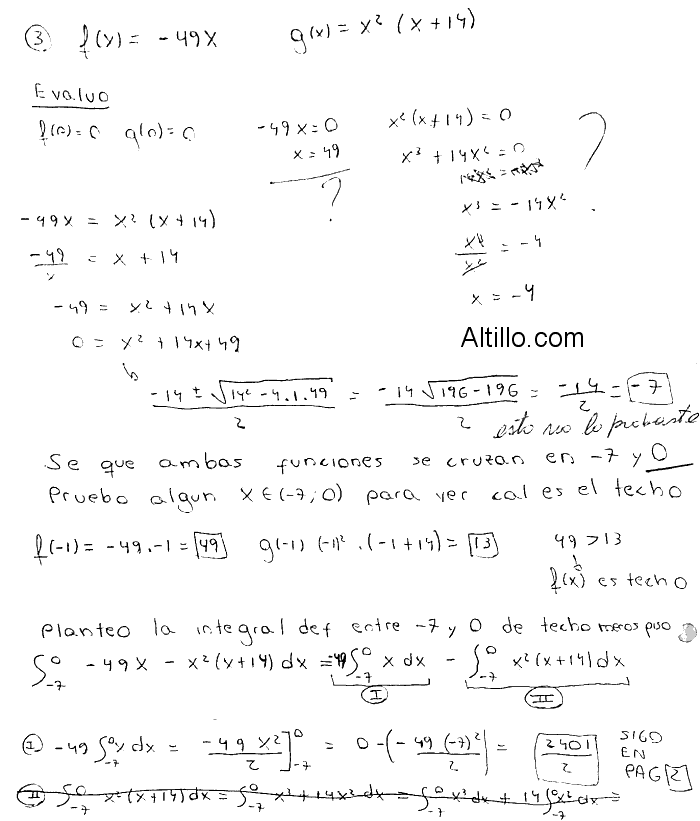 ③ f(x) = -49x g(x) = x² (x+14)
Evaluo
f(0)=0 g(0)=0
-49x=0
x=49
?
x²(x+14)=0
x³ + 14x² = 0
x³ = -14x²
= -4
x = -4
?
-49x = x² (x+14)
-49/x = x + 14
-49 = x² + 14x
0 = x² + 14x+49
(-14 ± √(14² - 4.1.49))/2 = (-14 √(196-196))/2 = -14/2 = -7
esto no lo probaste
Altillo.com
Se que ambas funciones se cruzan en -7 y 0
Pruebo algun x∈(-7;0) para ver cal es el techo
f(-1) = -49.-1 = 49 g(-1) (-1)² . (-1+14) = 13 49 > 13
f(x) es techo
Planteo la integral def entre -7 y 0 de techo menos piso
∫₋₇⁰ -49x - x²(x+14) dx = -49 ∫₋₇⁰ x dx - ∫₋₇⁰ x²(x+14) dx
Ⓘ Ⓘⓘ
Ⓘ -49 ∫₋₇⁰ x dx = -49 x²/2 ]₋₇⁰ = 0 - (-49 (-7)²/2) = 2401/2
SIGO
EN
PAG 2
Ⓘⓘ ∫₋₇⁰ x²(x+14) dx = ∫₋₇⁰ x³ + 14x² dx = ∫₋₇⁰ x³ dx + 14 ∫₋₇⁰ x² dx =